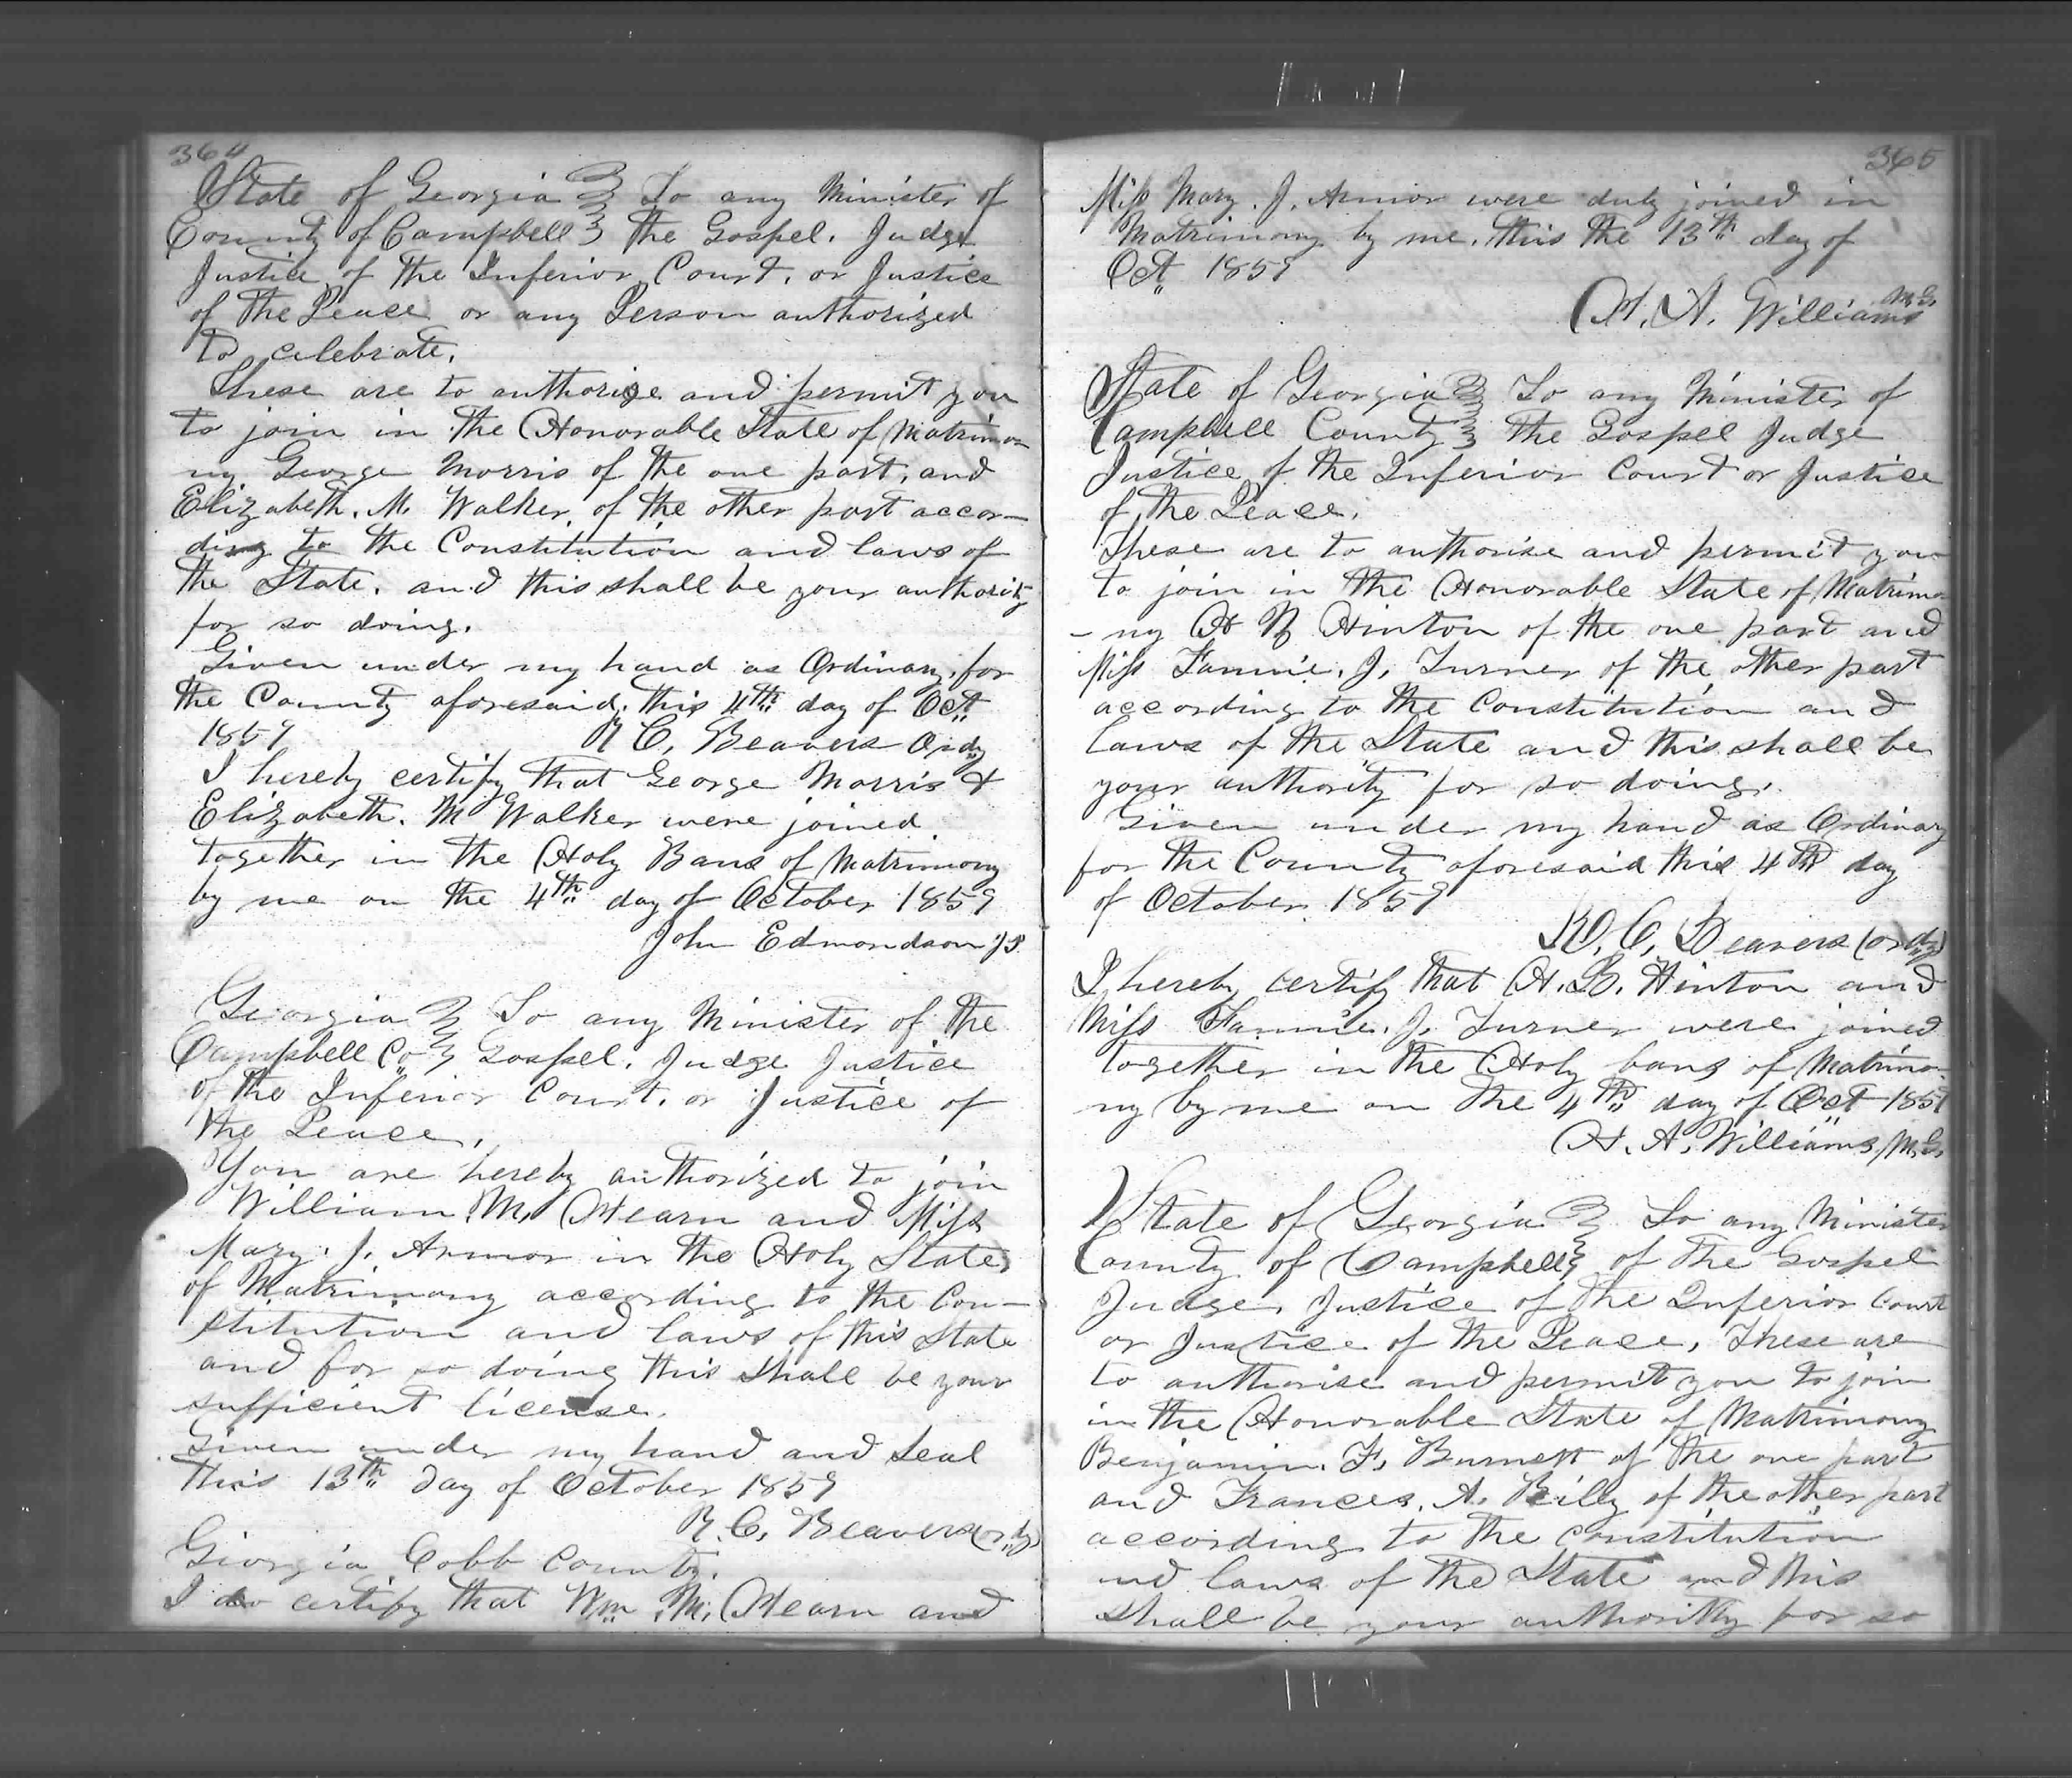 364
State of Georgia To any Minister of
County of Campbell the Gospel. Judge
Justice of the Inferior Court, or Justice
of the Peace or any Person authorized
to celebrate.
These are to authorize and permit you
to join in the Honorable State of Matrimo
ny George Morris of the one part, and
Elizabeth. M. Walker, of the other part accor-
ding to the Constitution and laws of
the State, and this shall be your authority
for so doing.
Given under my hand as Ordinary, for
the County aforesaid, this 4th day of Oct
1859 R C. Beavers Ordy
I hereby certify that George Morris &
Elizabeth. M Walker were joined
together in the Holy Bans of Matrimony
by me on the 4th day of October 1859
John Edmondson J.P.
Georgia To any Minister of the
Campbell Co Gospel. Judge Justice
of the Inferior Court, or Justice of
the Peace,
You are hereby authorized to join
William. M. Hearn and Miss
Mary. J. Armor in the Holy State
of Matrimony according to the Con-
stitution and laws of this State
and for so doing this shall be your
sufficient license.
Given under my hand and Seal
this 13th day of October 1859
R. C. Beavers (ordy)
Giorgia, Cobb County.
I do certify that Wm. M. Hearn and
365
Miss Mary. J. Armor were duly joined in
Matrimony by me, this the 13th day of
Oct 1859
H. A. Williams M.G.
State of Georgia To any Minister of
Campbell County the Gospel Judge
Justice of the Inferior Court or Justice
of the Peace.
These are to authorise and permit you
to join in the Honorable State of Matrimo
-ny H B Hinton of the one part and
Miss Fannie. J. Turner of the other part
according to the Constitution and
laws of the State and this shall be
your authority for so doing.
Given under my hand as Ordinary
for the County aforesaid this 4th day
of October 1859
R. C. Beavers (ordy)
I hereby certify that H. B. Hinton and
Miss Fannie. J. Turner were joined
together in the Holy bans of Matrimo-
ny by me on the 4th day of Oct 1859
H. A. Williams, M.G.
State of Georgia To any Minister
County of Campbell of the Gospel
Judge, Justice of the Inferior Court
or Justice of the Peace, These are
to authorise and permit you to join
in the Honorable State of Matrimony
Benjamin. F. Burnett of the one part
and Frances. A. Reily of the other part
according to the Constitution
and laws of the State and this
shall be your authority for so